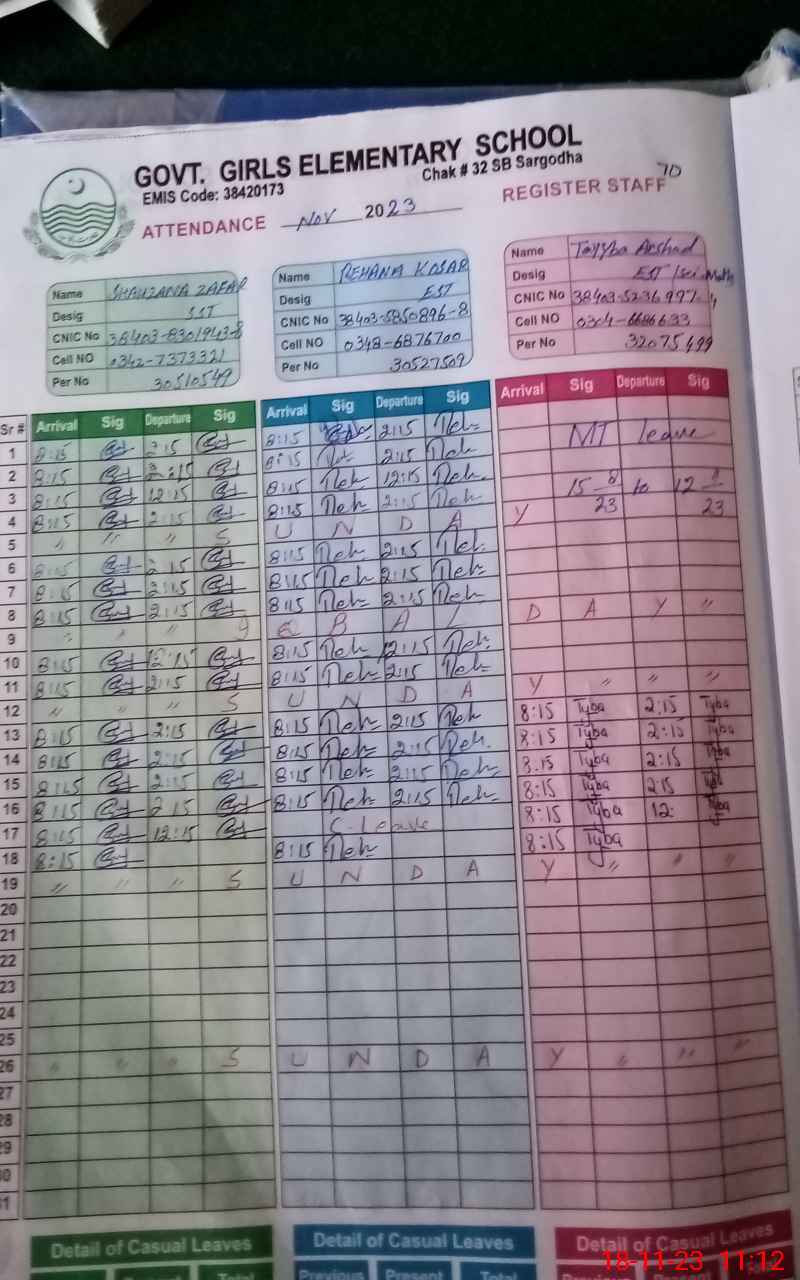 GOVT. GIRLS ELEMENTARY SCHOOL
EMIS Code: 38420173 Chak # 32 SB Sargodha
70
ATTENDANCE Nov 2023 REGISTER STAFF
Name SHAHZANA ZAFAR
Desig SST
CNIC No 38403-8301943-8
Cell NO 0342-7373321
Per No 30510549
Name REHANA KOSAR
Desig EST
CNIC No 38403-5850896-8
Cell NO 0348-6876700
Per No 30527509
Name Tayyba Arshad
Desig EST Sci-Math
CNIC No 38403-5236997-4
Cell NO 0304-6686633
Per No 32075499
Sr # Arrival Sig Departure Sig Arrival Sig Departure Sig Arrival Sig Departure Sig
1 8:15 2:15 8:15 2:15 Reh MT leave
2 8:15 2:15 8:15 Reh 2:15 Reh
3 8:15 12:15 8:15 Reh 12:15 Reh 15-8/23 to 12-11/23
4 8:15 2:15 8:15 Reh 2:15 Reh
5 " " " S U N D A Y
6 8:15 2:15 8:15 Reh 2:15 Reh
7 8:15 2:15 8:15 Reh 2:15 Reh
8 8:15 2:15 8:15 Reh 2:15 Reh
9 " " " B A L D A Y "
10 8:15 12:15 8:15 Reh 12:15 Reh
11 8:15 2:15 8:15 Reh 2:15 Reh
12 " " " S U N D A Y " " "
13 8:15 2:15 8:15 Reh 2:15 Reh 8:15 Tyba 2:15 Tyba
14 8:15 2:15 8:15 Reh 2:15 Reh 8:15 Tyba 2:15 Tyba
15 8:15 2:15 8:15 Reh 2:15 Reh 8:15 Tyba 2:15 Tyba
16 8:15 2:15 8:15 Reh 2:15 Reh 8:15 Tyba 2:15 Tyba
17 8:15 12:15 C-Leave 8:15 Tyba 12: Tyba
18 8:15 8:15 Reh 8:15 Tyba
19 " " " S U N D A Y " " "
20
21
22
23
24
25
26 " " " S U N D A Y " " "
27
28
29
30
31
Detail of Casual Leaves Detail of Casual Leaves Detail of Casual Leaves
Present Total Previous Present Total
18-11-23 11:12